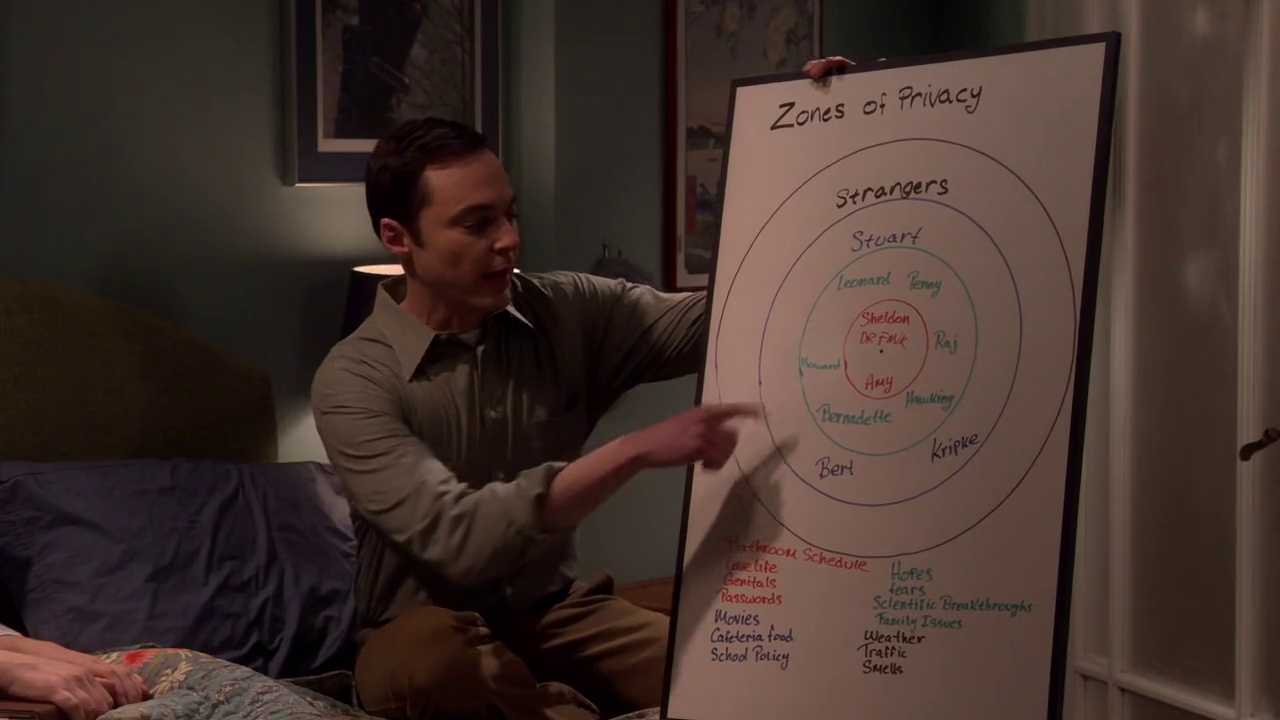 Zones of Privacy
Strangers
Stuart
Leonard Penny
Sheldon
DR FMK
Raj
Howard
Amy
Hawking
Bernadette
Kripke
Bert
Bathroom Schedule
Love life
Genitals
Passwords
Movies
Cafeteria food
School Policy
Hopes
fears
Scientific Breakthroughs
Family Issues
Weather
Traffic
Smells